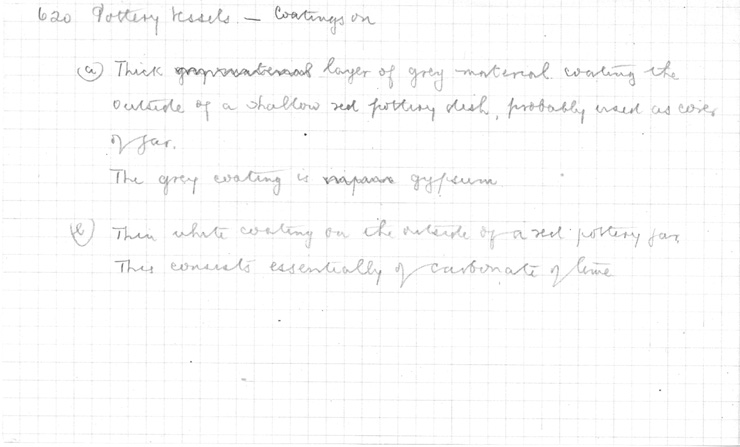 620 Pottery Vessels. — Coatings on
(a) Thick layer of grey material coating the
outside of a shallow red pottery dish, probably used as cover
of jar.
The grey coating is gypsum
(b) Thin white coating on the outside of a red pottery jar
This consists essentially of carbonate of lime